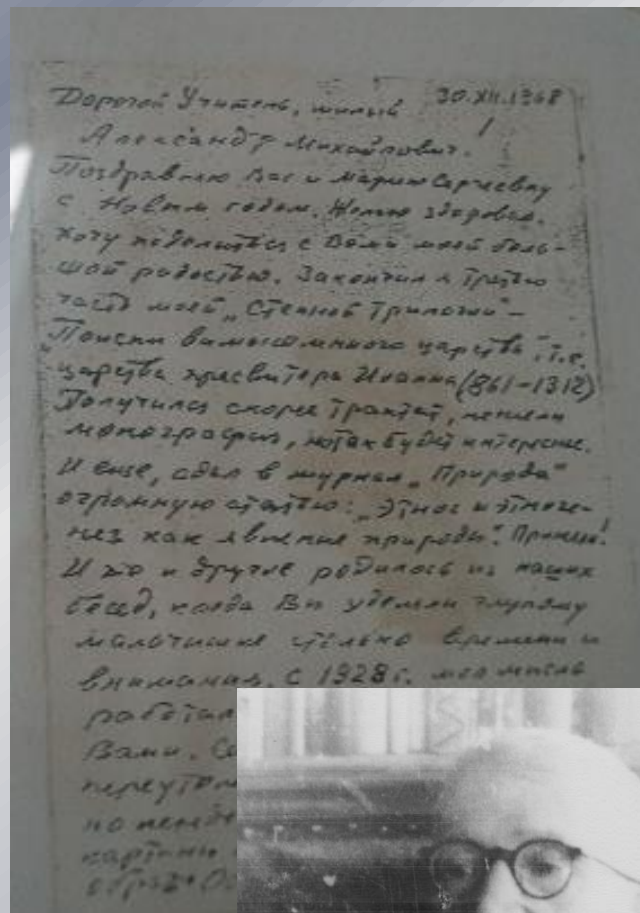 30.XII.1968
Дорогой Учитель, милый
Александр Михайлович!
Поздравляю Вас и Марию Сергеевну
с Новым годом. Желаю здоровья.
Хочу поделиться с Вами моей боль-
шой радостью. Закончил я третью
часть моей „Степной Трилогии" –
Поиски вымышленного царства", т.е.
царства пресвитера Иоанна (861–1312)
Получился скорее трактат, нежели
монография, но так будет интереснее.
И еще, сдал в журнал „Природа"
огромную статью: „Этнос и этноге-
нез как явление природы". Приняли!
И то и другое родилось из наших
бесед, когда Вы уделяли глупому
мальчишке столько времени и
внимания. С 1928 г. моя мысль
работал
Вами.
переутом
но
картины
образ